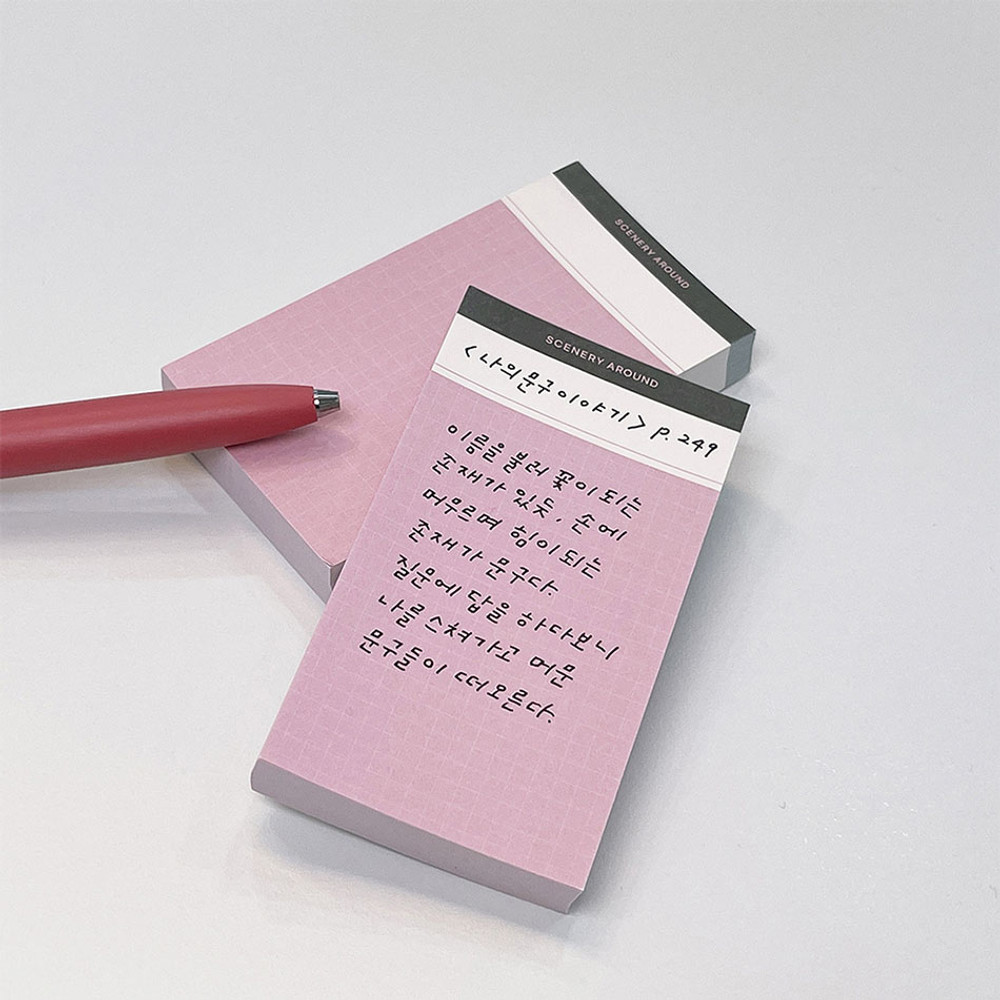 SCENERY AROUND
SCENERY AROUND
<나의 문구 이야기> P. 249
이름을 불러 꽃이 되는
존재가 있듯, 손에
머무르며 힘이 되는
존재가 문구다.
질문에 답을 하다보니
나를 스쳐가고 머문
문구들이 떠오른다.